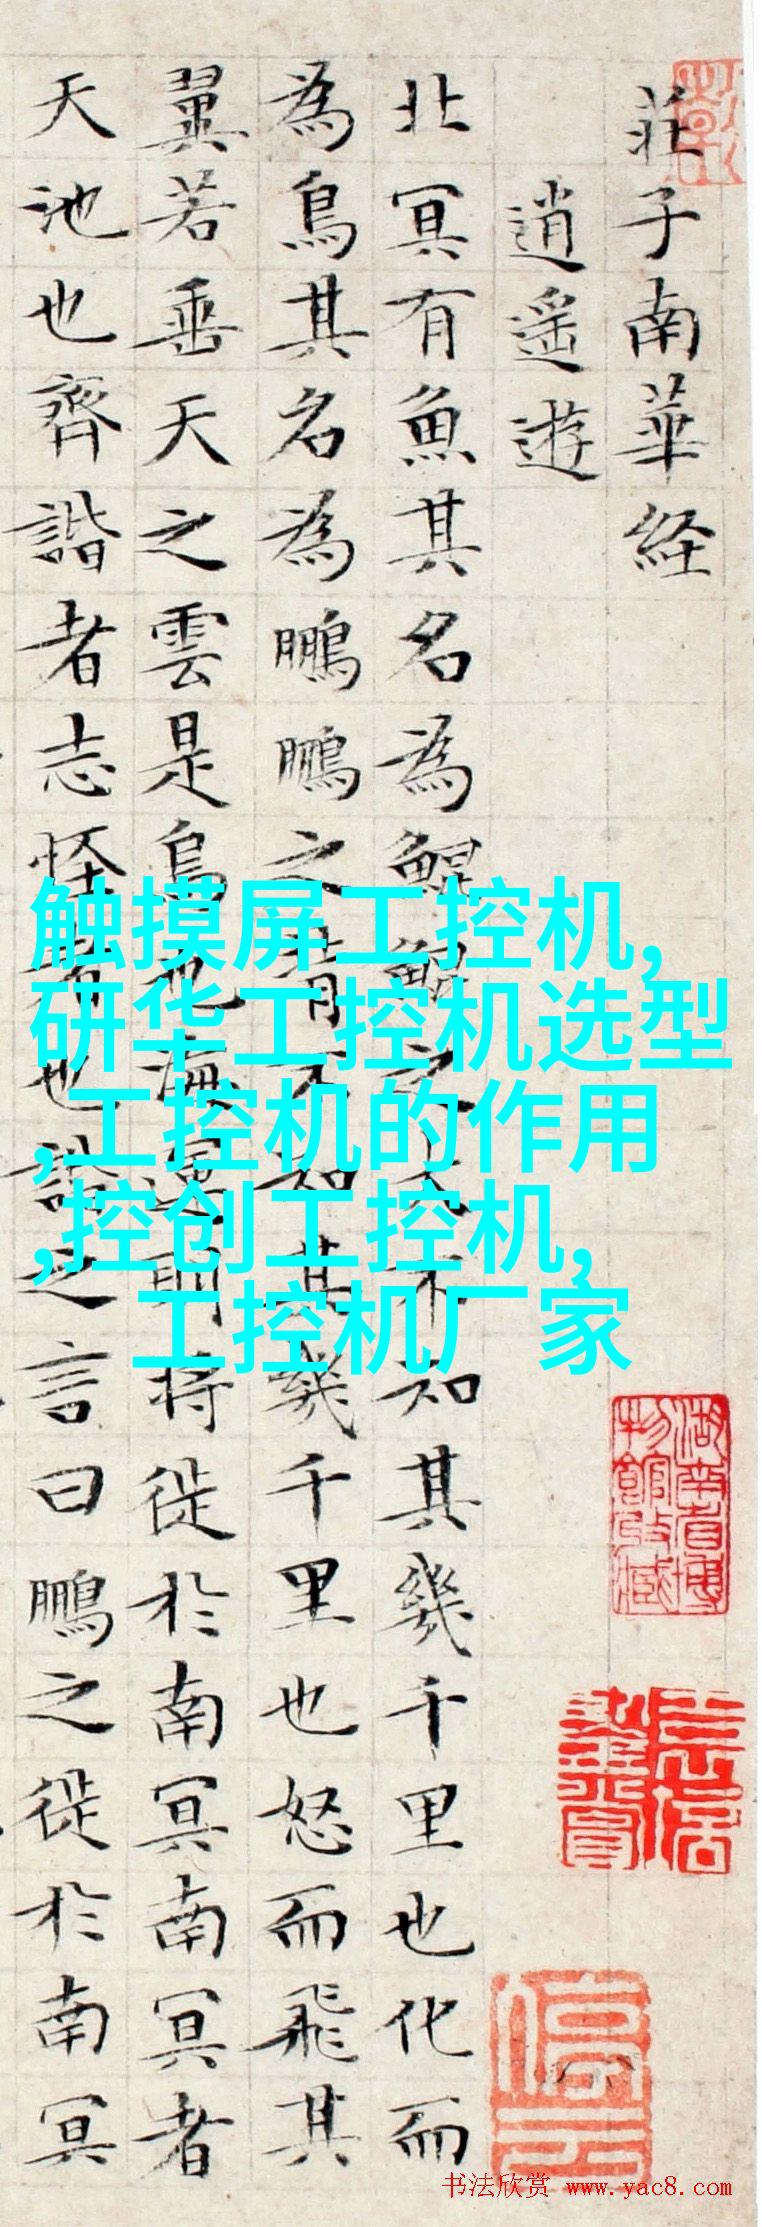 莊子南華経
逍遙遊
北冥有魚其名為鯤鯤之大不知其幾千里也化而
為鳥其名為鵬鵬之背不知其幾千里也怒而飛其
翼若垂天之雲是鳥也海運則将徙於南冥南冥者
天池也齊諧者志怪者也諧之言曰鵬之徙於南冥
触摸屏工控机,
研华工控机选型
,工控机的作用
,控创工控机,
工控机厂家
湖南省博
物館收藏
书法欣赏 www.yac8.com